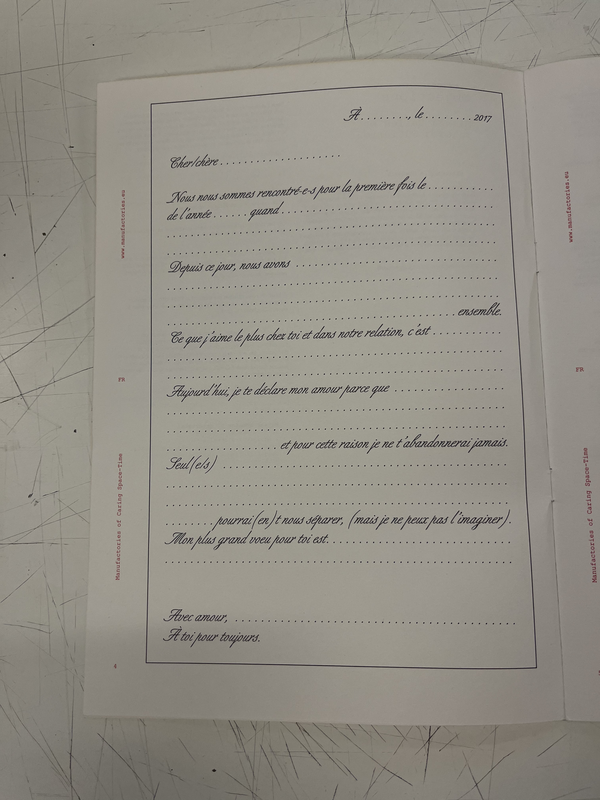 À . . . . . . . . , le . . . . . . . . 2017
Cher/chère . . . . . . . . . . . . . . . . . . . .
Nous nous sommes rencontré-e-s pour la première fois le . . . . . . . . . . .
de l'année . . . . . . quand . . . . . . . . . . . . . . . . . . . . . . . . . . . . . . . . . . .
Depuis ce jour, nous avons . . . . . . . . . . . . . . . . . . . . . . . . . . . . . . . .
. . . . . . . . . . . . . . . . . . . . . . . . . . . . . . . . . . . . . . . . . . . . . . ensemble.
Ce que j'aime le plus chez toi et dans notre relation, c'est . . . . . . . . . . .
Aujourd'hui, je te déclare mon amour parce que . . . . . . . . . . . . . . . . . .
. . . . . . . . . . . . . . . . . . et pour cette raison je ne t'abandonnerai jamais.
Seul(e/s) . . . . . . . . . . . . . . . . . . . . . . . . . . . . . . . . . . . . . . . . . . . . .
. . . . . . . . pourrai(en)t nous séparer, (mais je ne peux pas l'imaginer).
Mon plus grand voeu pour toi est. . . . . . . . . . . . . . . . . . . . . . . . . . . . .
Avec amour, . . . . . . . . . . . . . . . . . . . . . . . . . . . . . . . . . . . . . . . . . . .
À toi pour toujours.
www.manufactories.eu
FR
Manufactories of Caring Space-Time
www.manufactories.eu
FR
Manufactories of Caring Space-Time